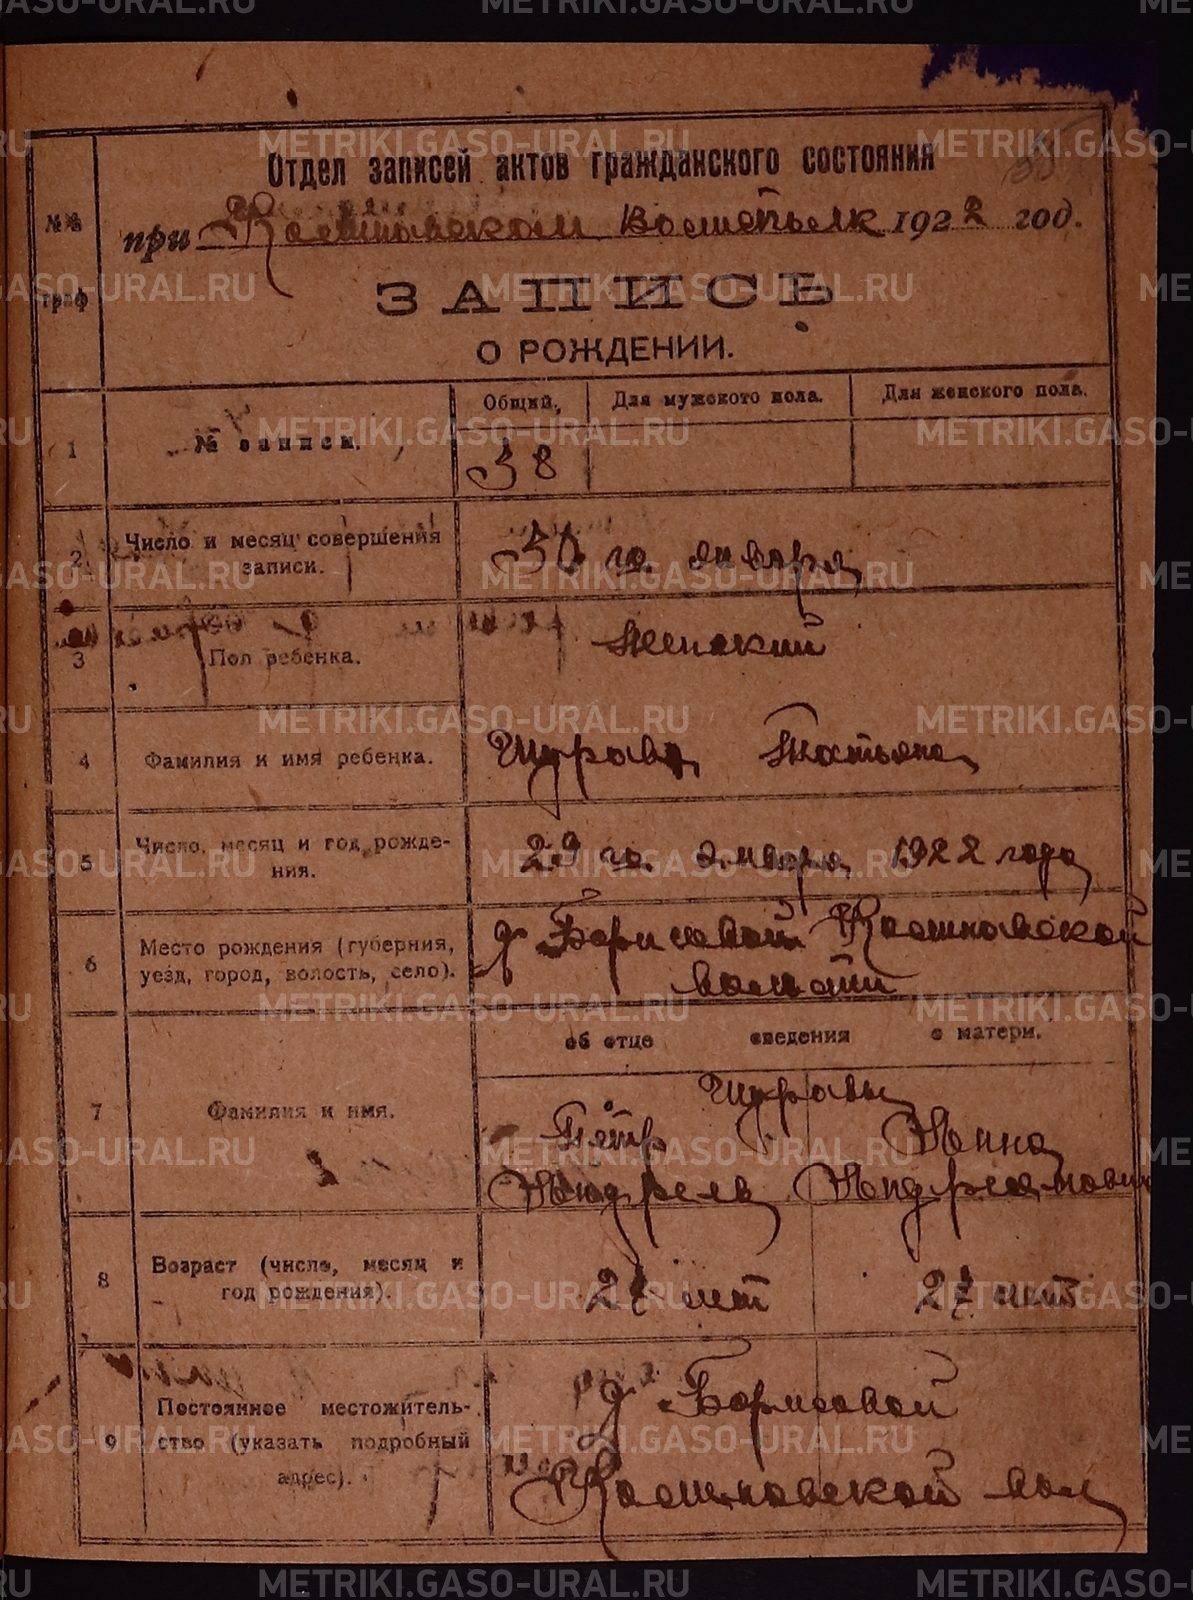 Отдел записей актов гражданского состояния
при Волисполк 1922 год.
№№ граф
ЗАПИСЬ
О РОЖДЕНИИ.
Общий, Для мужского пола. Для женского пола.
1 № записи. 38
2 Число и месяц совершения записи. 30 го. января
3 Пол ребенка. Женский
4 Фамилия и имя ребенка. Щурова Татьяна
5 Число, месяц и год рождения. 29 го. января 1922 года
6 Место рождения (губерния, д Борисовой
уезд, город, волость, село). волости
об отце сведения о матери.
7 Фамилия и имя. Щуровы
Пётр Анна
Андреев
8 Возраст (число, месяц и год рождения). лет лет
9 Постоянное местожительство (указать подробный адрес). д Борисовой
вол
METRIKI.GASO-URAL.RU